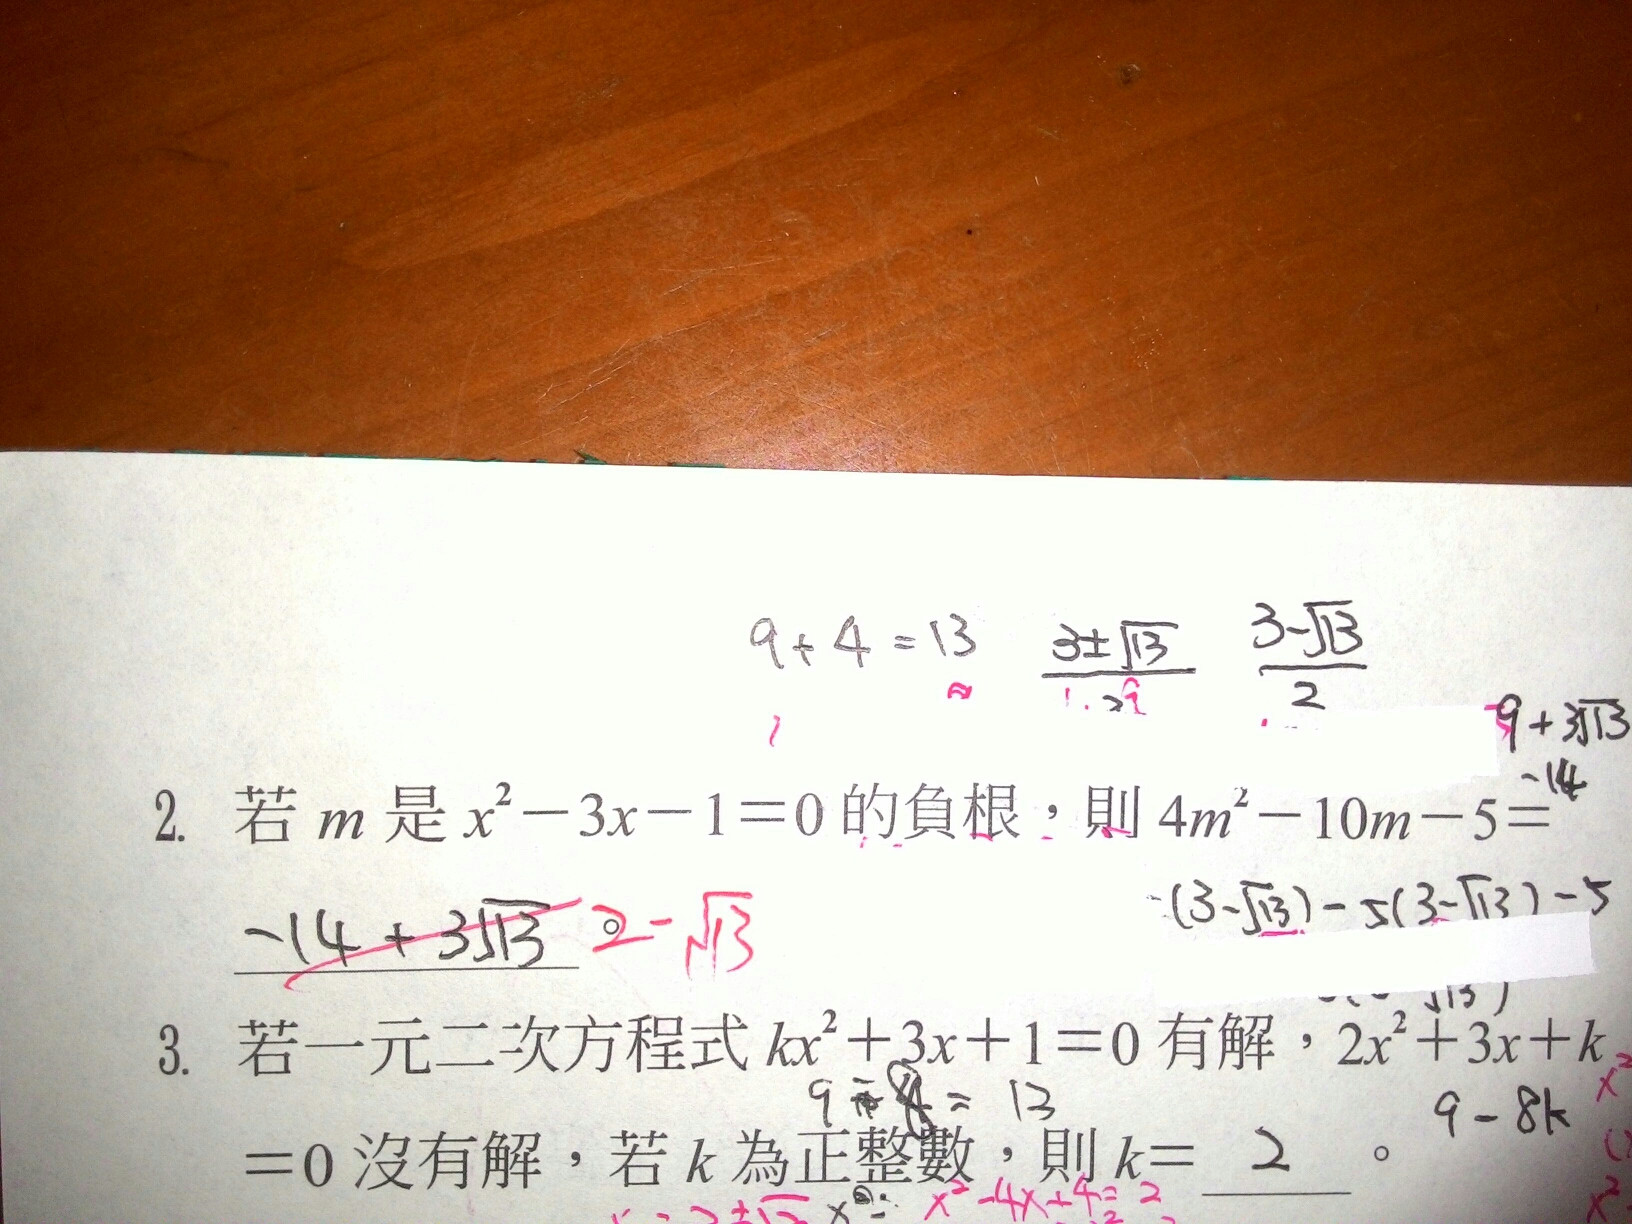 9+4=13 3±√13/2 3-√13/2
9+3√13
-14
2. 若 m 是 x²-3x-1=0 的負根,則 4m²-10m-5=
-14+3√13。2-√13
(3-√13)-5(3-√13)-5
√13)
3. 若一元二次方程式 kx²+3x+1=0 有解,2x²+3x+k
9 = 13 9-8k
=0 沒有解,若 k 為正整數,則 k= 2 。
x²-4x+4=2